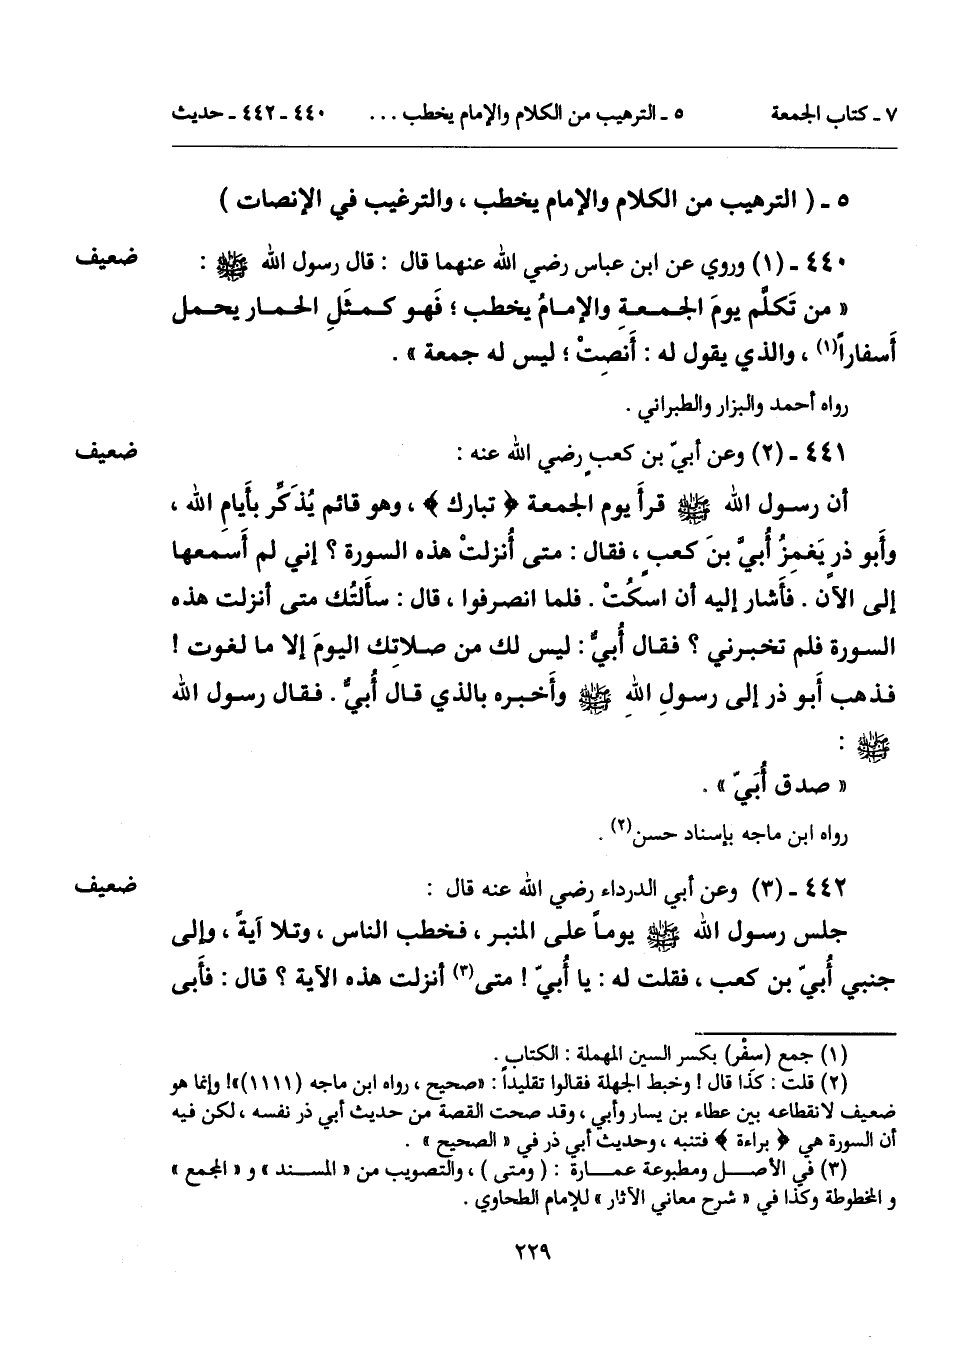 ٧ - كتاب الجمعة ٥ - الترهيب من الكلام والإمام يخطب ... ٤٤٠ - ٤٤٢ - حديث
٥ - ( الترهيب من الكلام والإمام يخطب ، والترغيب في الإنصات )
٤٤٠ - (١) وروي عن ابن عباس رضي الله عنهما قال : قال رسول الله ﷺ : ضعيف
« من تَكلَّم يومَ الجمعةِ والإمامُ يخطب ؛ فَهو كمثَلِ الحمار يحمل
أَسفاراً(١) ، والذي يقول له : أَنصِتْ ؛ ليس له جمعة » .
رواه أحمد والبزار والطبراني .
٤٤١ - (٢) وعن أبيّ بن كعبٍ رضي الله عنه : ضعيف
أن رسول الله ﷺ قرأَ يوم الجمعة ﴿ تبارك ﴾ ، وهو قائم يُذَكِّر بأَيامِ الله ،
وأَبو ذرٍ يَغمِزُ أُبيَّ بنَ كعبٍ ، فقال : متى أُنزلتْ هذه السورة ؟ إني لم أَسمعها
إلى الآن . فأَشار إليه أن اسكُتْ . فلما انصرفوا ، قال : سأَلتُك متى أنزلت هذه
السورة فلم تخبرني ؟ فقال أُبيٌّ : ليس لك من صلاتِك اليومَ إلا ما لغوت !
فذهب أَبو ذر إلى رسولِ اللهِ ﷺ وأَخبره بالذي قال أُبيٌّ . فقال رسول الله
ﷺ :
« صدق أُبَيّ » .
رواه ابن ماجه بإسناد حسن(٢) .
٤٤٢ - (٣) وعن أبي الدرداء رضي الله عنه قال : ضعيف
جلس رسول الله ﷺ يوماً على المنبر ، فخطب الناس ، وتلا آيةً ، وإلى
جنبي أُبيّ بن كعب ، فقلت له : يا أُبيّ ! متى(٣) أنزلت هذه الآية ؟ قال : فأَبى
(١) جمع (سفْر) بكسر السين المهملة : الكتاب .
(٢) قلت : كذا قال ! وخبط الجهلة فقالوا تقليداً : «صحيح ، رواه ابن ماجه (١١١١)»! وإنما هو
ضعيف لانقطاعه بين عطاء بن يسار وأبي ، وقد صحت القصة من حديث أبي ذر نفسه ، لكن فيه
أن السورة هي ﴿ براءة ﴾ فتنبه ، وحديث أبي ذر في « الصحيح » .
(٣) في الأصل ومطبوعة عمارة : ( ومتى ) ، والتصويب من « المسند » و « المجمع »
و المخطوطة وكذا في « شرح معاني الآثار » للإمام الطحاوي .
٢٢٩